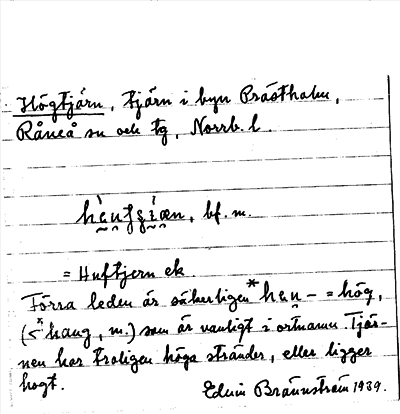 Högtjärn, tjärn i byn Prästholm,
Råneå sn och tg, Norrb. l.
bf. m.
= Huftjern ek.
Förra leden är säkerligen *hęn- = hög,
(< *haug, m.) som är vanligt i ortnamn. Tjär-
nen har troligen höga stränder, eller ligger
högt.
Edvin Brännström 1939.